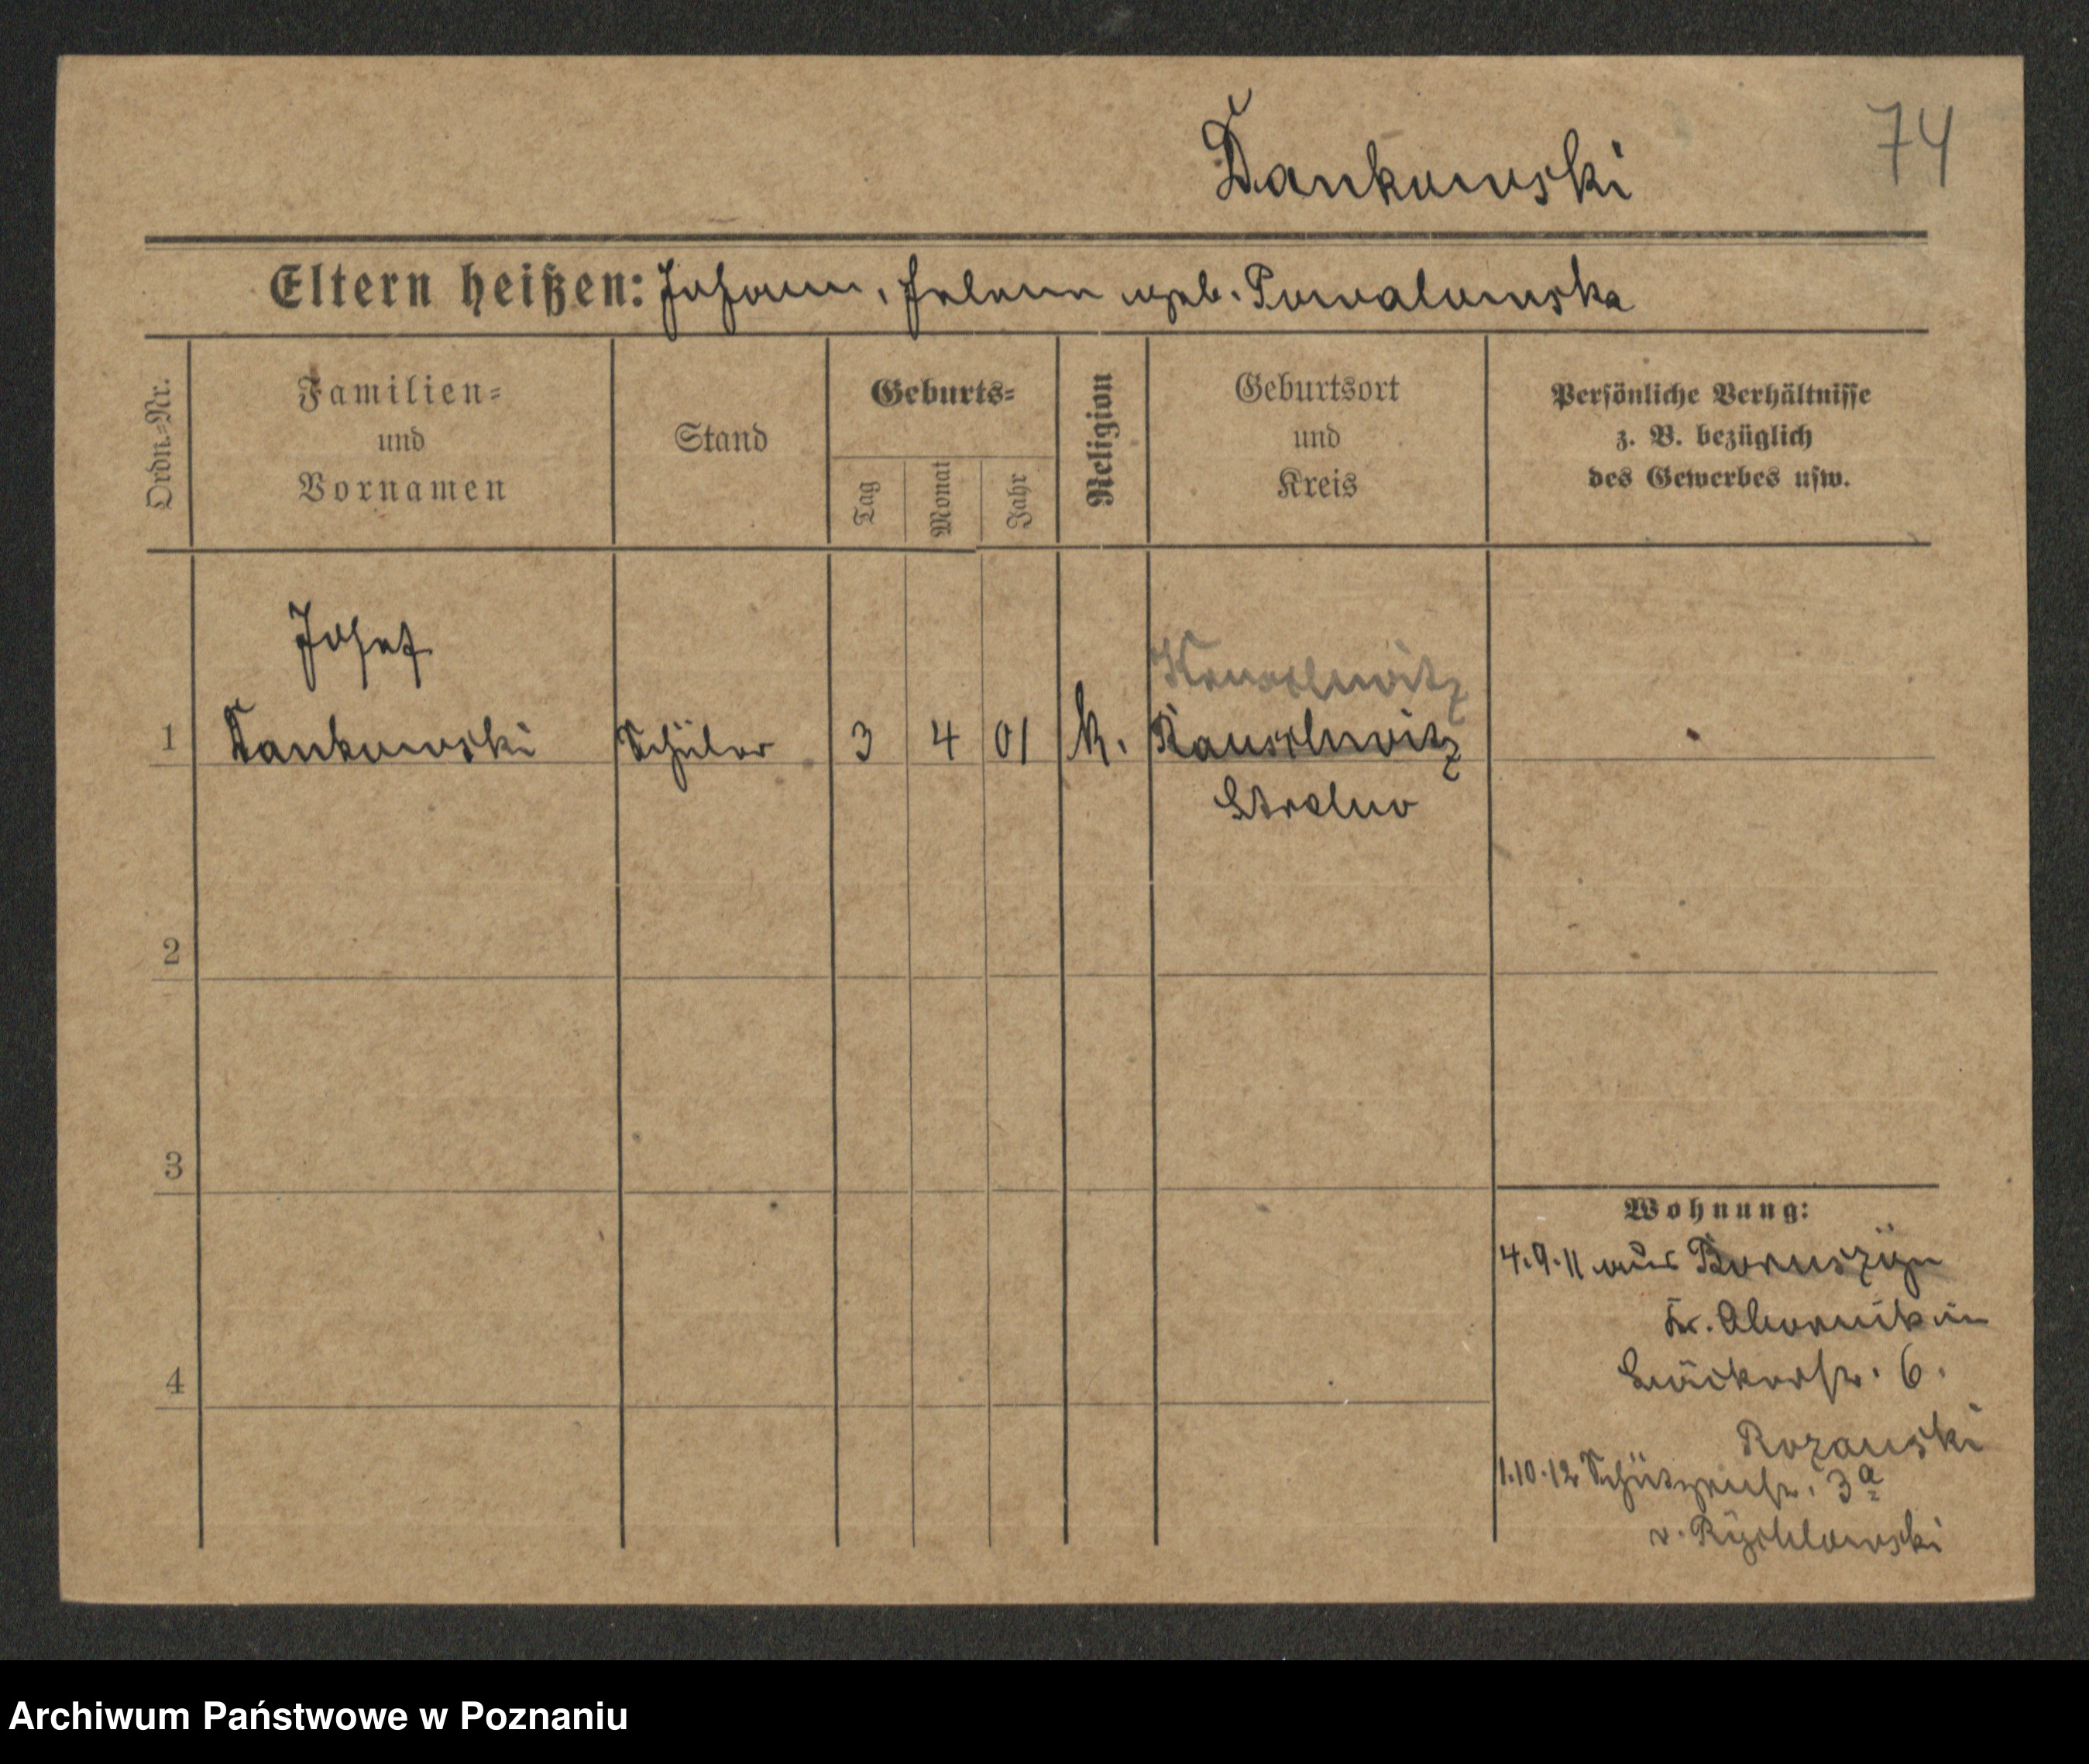 Dankowski
74
Eltern heißen: Johann, Helene geb. Powalowska
Ordn.-Nr.
Familien-
und
Vornamen
Stand
Geburts-
Tag
Monat
Jahr
Religion
Geburtsort
und
Kreis
Persönliche Verhältnisse
z. B. bezüglich
des Gewerbes usw.
Josef
1 Dankowski Schüler 3 4 01 k.
Strelno
2
3
4
Wohnung:
4.9.11 aus Boruszyn
Kr. Obornik in
6.
Rozanski
1.10.12 Schützenstr. 3a
v. Rychlowski
Archiwum Państwowe w Poznaniu